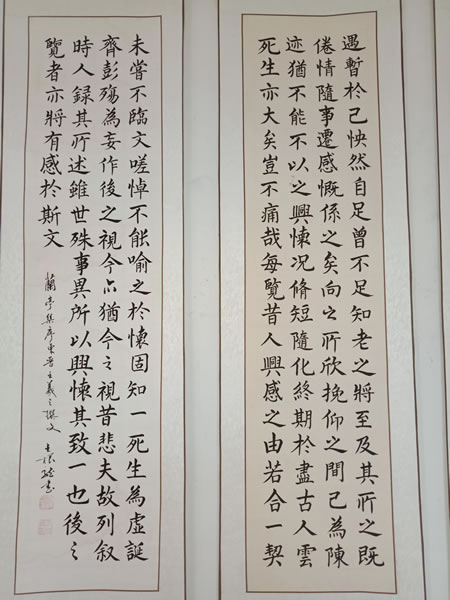 遇暫於己怏然自足曾不足知老之將至及其所之既
倦情隨事遷感慨係之矣向之所欣挽仰之間已為陳
迹猶不能不以之興懷况脩短隨化終期於盡古人雲
死生亦大矣豈不痛哉每覽昔人興感之由若合一契
未嘗不臨文嗟悼不能喻之於懷固知一死生為虛誕
齊彭殤為妄作後之視今亦猶今之視昔悲夫故列叙
時人録其所述雖世殊事異所以興懷其致一也後之
覽者亦將有感於斯文
蘭亭集序東晉王羲之撰文 書